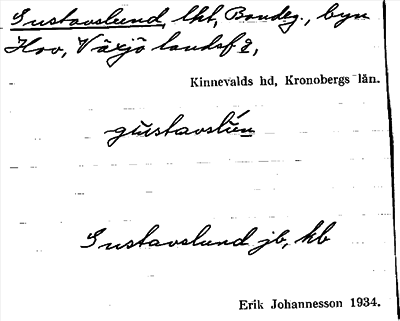 Gustavslund, lht, Bondeg., byn
Hov, Växjö landsf.,
Kinnevalds hd, Kronobergs län.
gu̇stavslún
Gustavslund jb, kb
Erik Johannesson 1934.